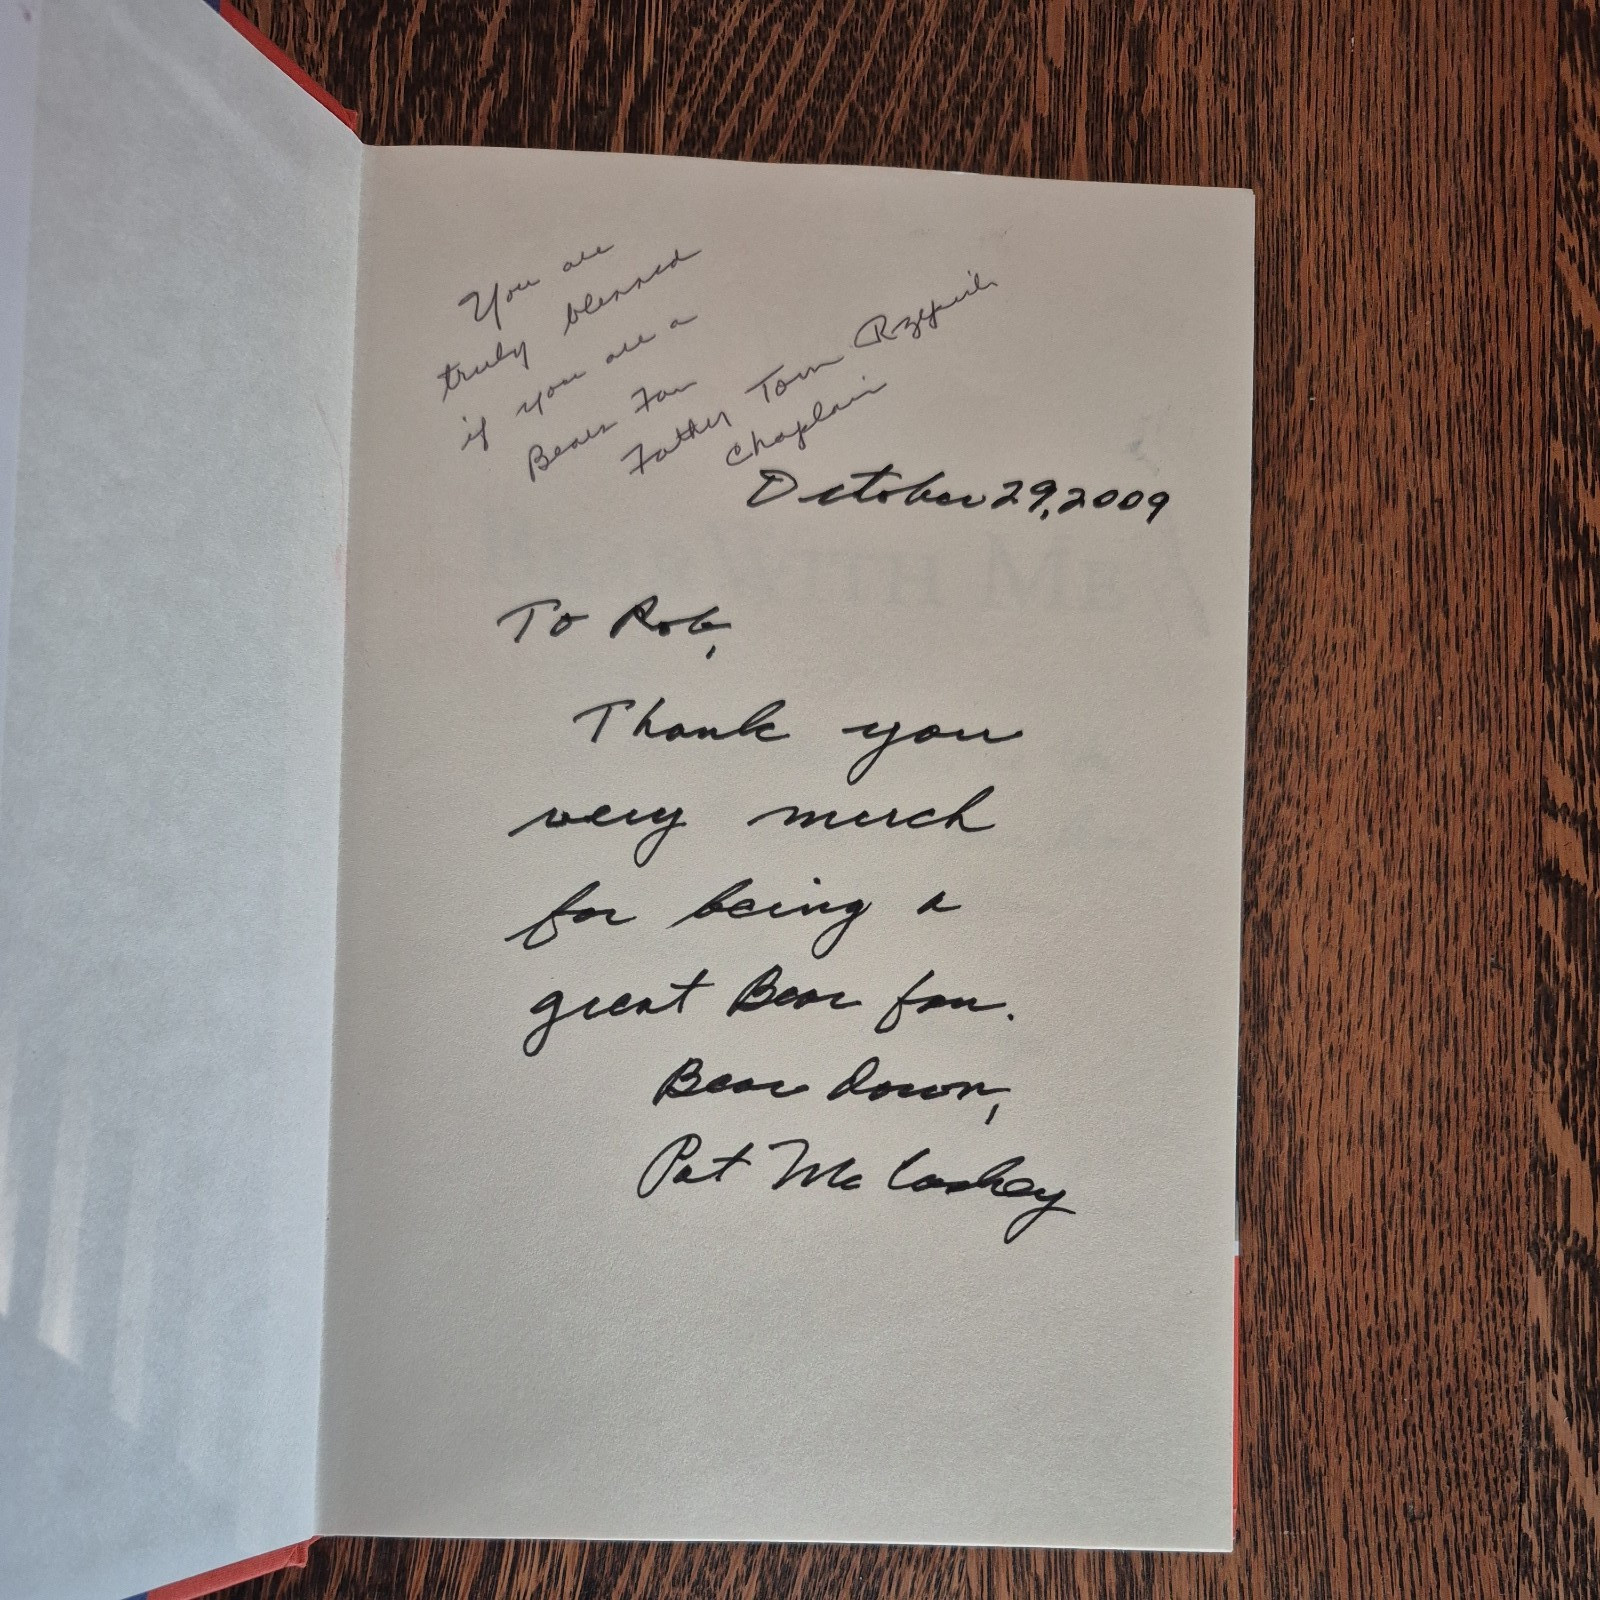 You are
truly blessed
if you are a
Bears Fan
Father Tom
Chaplain
October 29, 2009
To Rob,
Thank you
very much
for being a
great Bear fan.
Bear Down,
Pat McCaskey
WITH ME